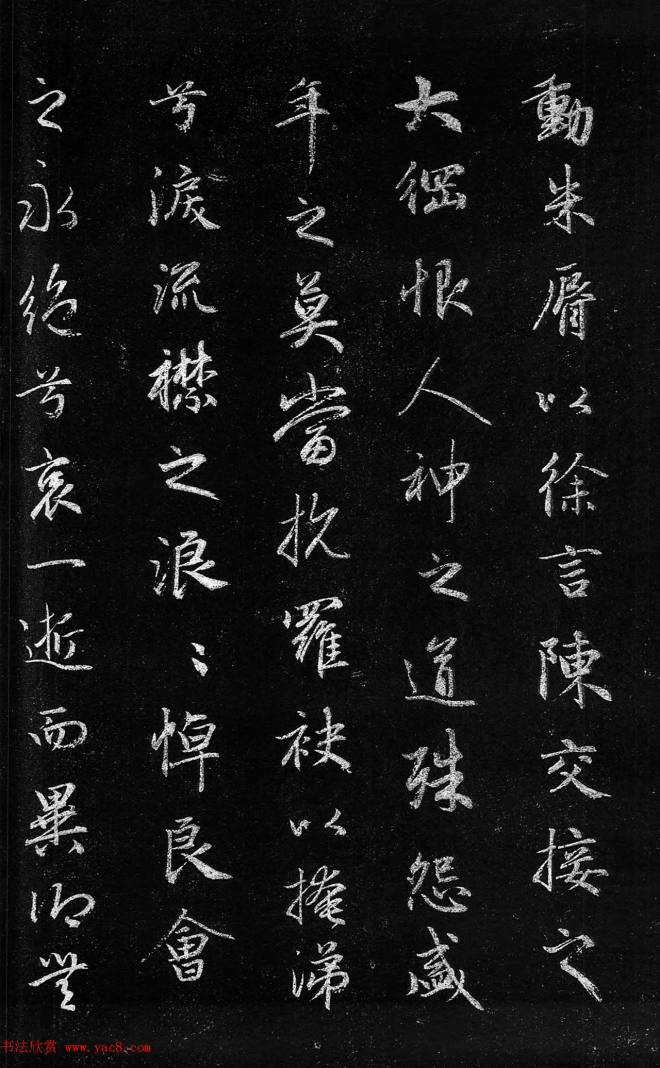 動朱脣以徐言陳交接之
大綱恨人神之道殊怨盛
年之莫當抗羅袂以掩涕
兮淚流襟之浪〻悼良會
之永絕兮哀一逝而異鄉無
书法欣赏 www.yac8.com